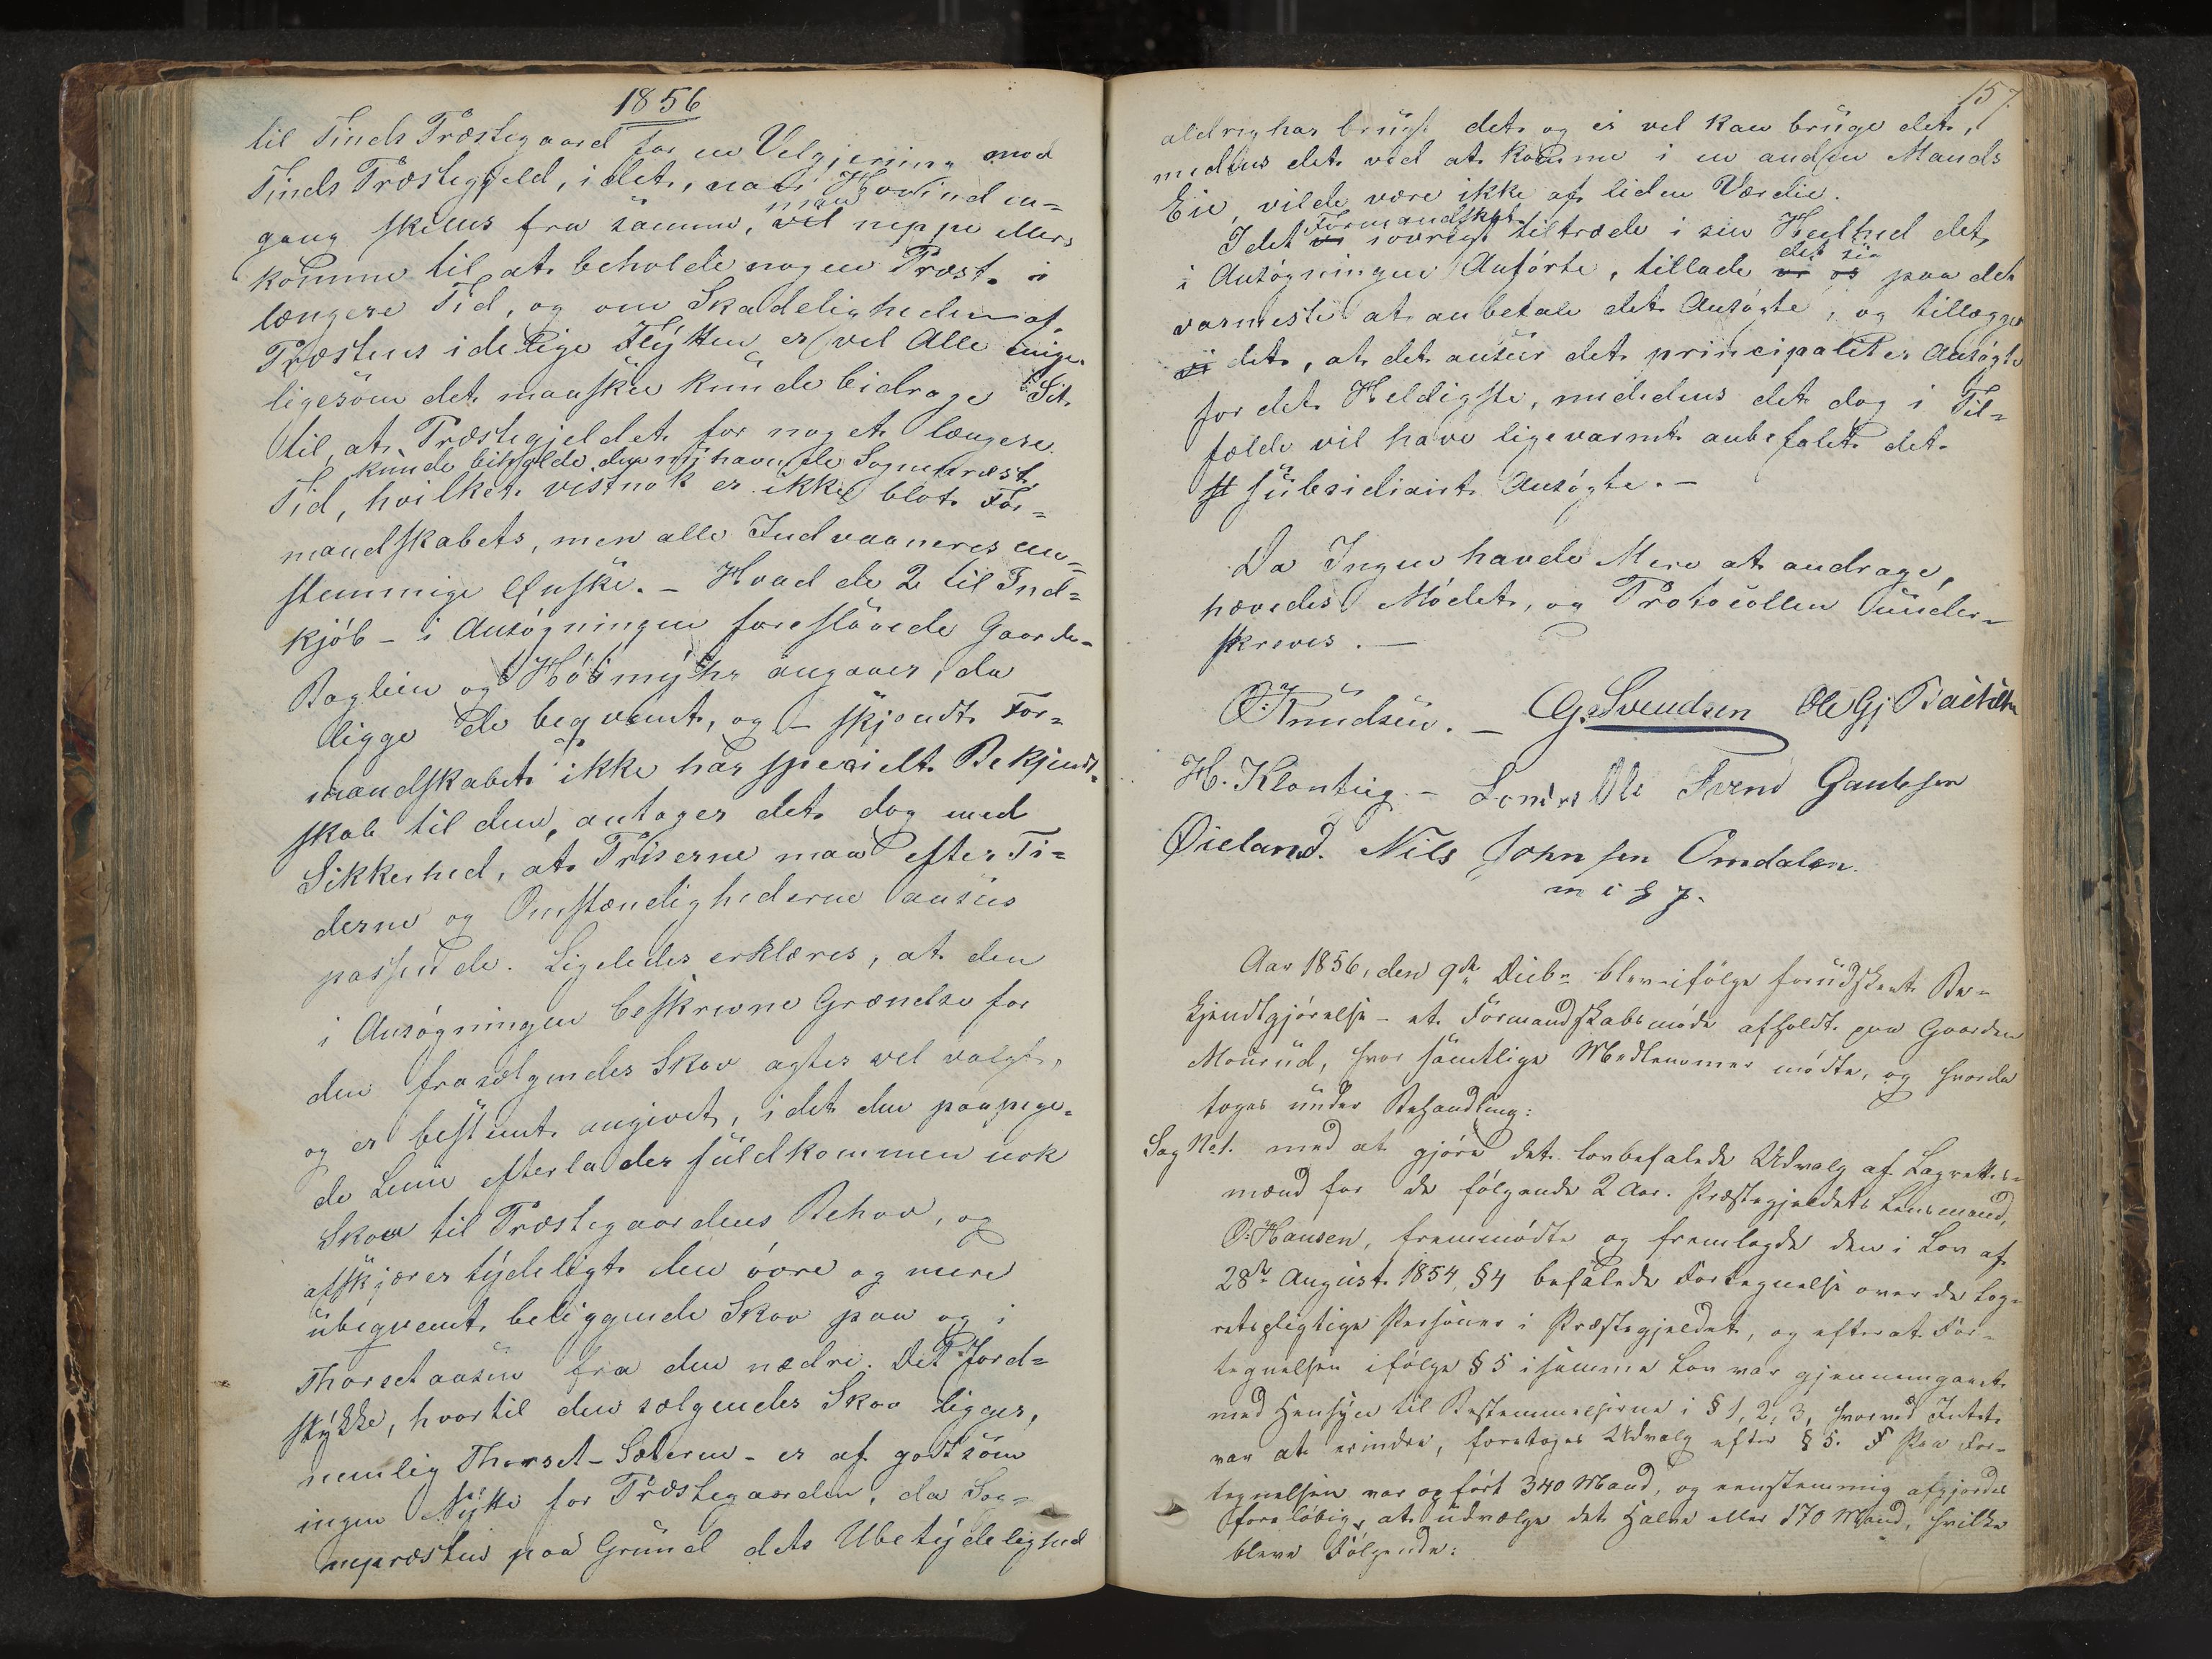 1856
til Tinds Præstegaard for en Velgjerning mod
Tinds Præstegjeld, idet, naar Hovind en-
gang skilles fra samme, man vil neppe mere
komme til at beholde nogen Præst i
længere Tid, og om Skadeligheden af
Præstens idelige Flytten er vel Alle enige
ligesom det maaskee kunde bidrage Sit
til, at Præstegjeldet for noget længere
kunde beholde den nyhavende Sognepræst,
Tid, hvilket vistnok er ikke blot For-
mandskabets, men alle Indvaaneres een-
stemmige Ønske. – Hvad de 2 til Ind-
kjøb – i Ansøgningen foreslaaede Gaarde –
Bøglien og Hósmyhr angaaer, da
ligge de beqvemt, og – skjøndt For-
mandskabet ikke har specielt Bekjendt-
skab til dem, antager det dog med
Sikkerhed, at Priserne maa efter Ti-
derne og Omstændighederne ansees
passende. Ligeledes erklæres, at den
i Ansøgningen beskrevne Grændse for
den frasælgendes Skov agtes vel valgt,
og er bestemt angivet, idet den paapege-
de Linie efterlader fuldkommen nok
Skov til Præstegaardens Behov, og
afskjærer tydeligt den övre og mere
ubeqvemt beliggende Skov paa og i
Thorsetaasen fra den nedre. Det Jord-
stykke, hvortil den sælgendes Skov ligger,
nemlig Thorset-Sæteren – er af godt som
ingen Nytte for Præstegaarden, da Sog-
nepræsten paa Grund dets Ubetydelighed
157.
aldrig har brugt det og ei vel kan bruge det,
medens det ved at komme i en anden Mands
Eie, vilde være ikke af liden Værdie.
Idet Formandskabet iøvrigt tiltræde i sin Heelhed det
i Ansøgningen Anførte, tillade det sig paa det
varmeste at anbefale det Ansøgte, og tillægger
det, at det anseer det principaliter Ansøgte
for det Heldigste, medens det dog i Til-
fælde vil have ligevarmt anbefalet det
subsidiairt Ansøgte. –
Da Ingen havde Mere at andrage,
hævedes Mødet, og Protocollen under-
skreves. –
O. Knudsen. – G. Svendsen Ole Gj. Bakken
H. Klonteig – Svend Gautsen
Øieland. Nils Johnsen Omdalen.
Aar 1856, den 9de Decbr blev – ifølge forudskeet Be-
kjendtgjørelse – et Formandskabsmøde afholdt paa Gaarden
Mourud, hvor samtlige Medlemmer mødte, og hvorda
toges under Behandling:
Sag No 1. med at gjøre det lovbefalede Udvalg af Lagrettes-
mænd for de følgende 2 Aar. Præstegjeldets Lensmand,
O. Hansen, fremmødte og fremlagde den i Lov af
28de August 1854, §4 befalede Fortegnelse over de Lag-
retspligtige Personer i Præstegjeldet, og efterat For-
tegnelsen ifølge § 5 i samme Lov var gjennemgaaet
med Hensyn til Bestemmelserne i § 1, 2, 3, hvorved Intet
var at erindre, foretoges Udvalg efter § 5. Paa For-
tegnelsen var opført 340 Mand, og eenstemmig afgjordes
foreløbig, at udvælge det Halve eller 170 Mand, hvilke
bleve Følgende: